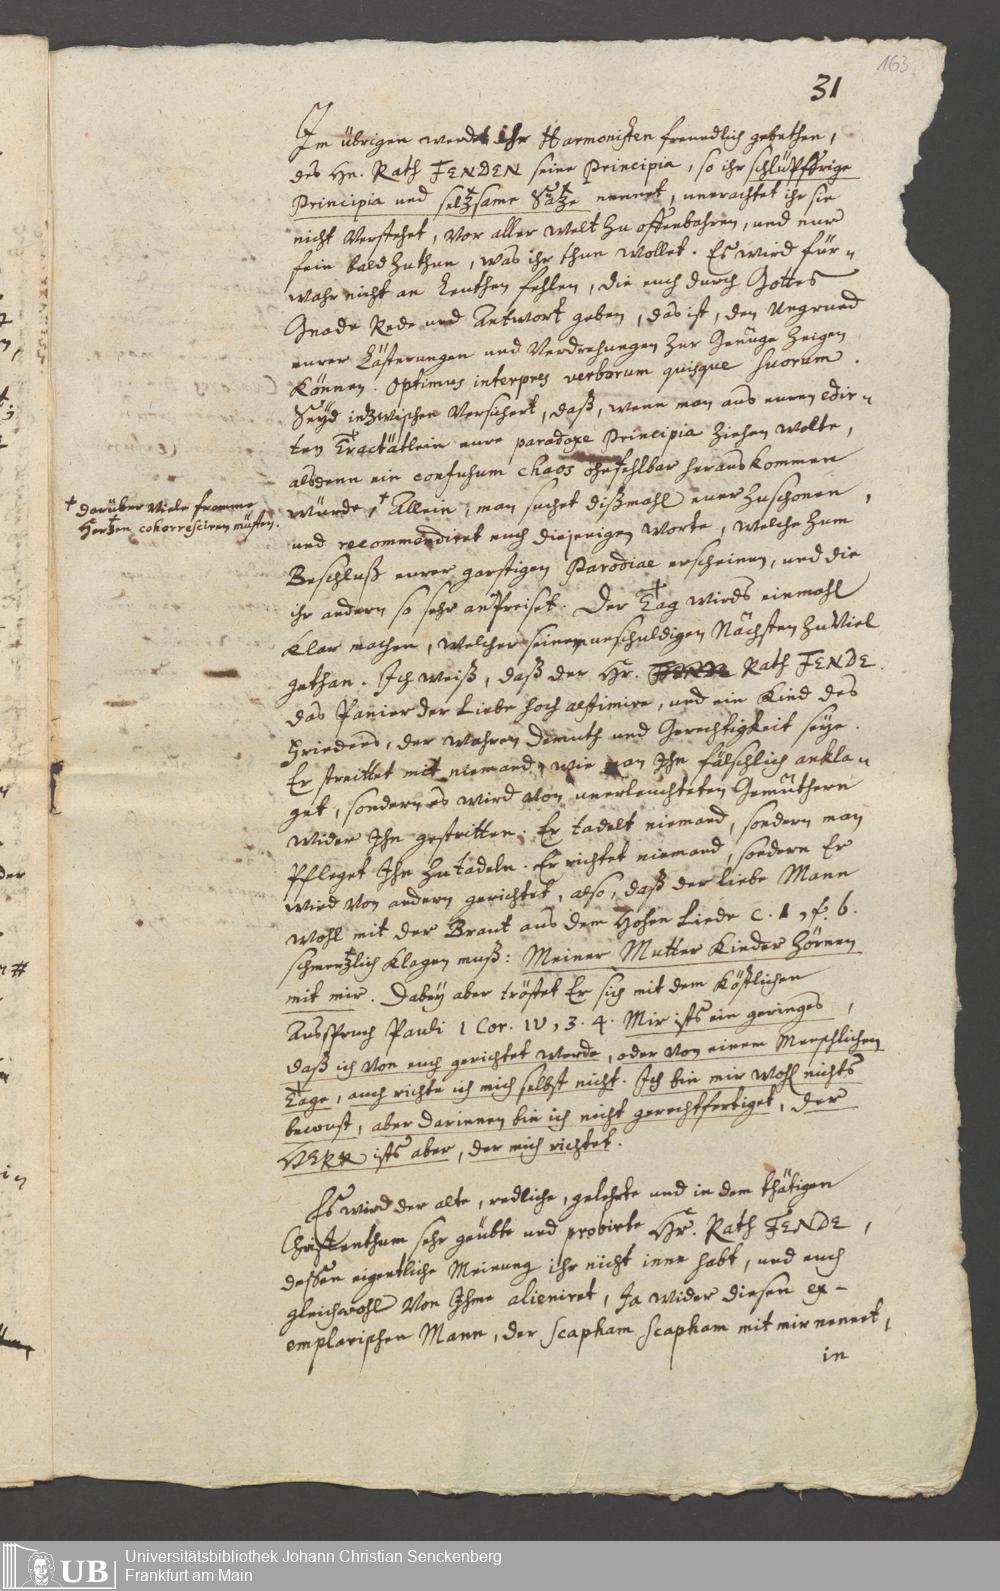 163
31
Im übrigen werdet ihr Harmonisten freundlich gebethen,
des Hn. Rath FENDEN seine Principia, so ihr schlüpffrige
Principia und seltzsame Sätze nennet, unerachtet ihr sie
nicht verstehet, vor aller Welt zu offenbahren, und nur
fein bald zuthun, was ihr thun wollet. Es wird für-
wahr nicht an Leuthen fehlen, die euch durch Gottes
Gnade Rede und Antwort geben, das ist, den Ungrund
eurer Lästerungen und Verdrehungen zur Genüge zeigen
können. Optimus interpres verborum quisque suorum.
Seyd inzwischen versichert, daß, wenn man aus euren edir-
ten Tractätlein eure paradoxe Principia ziehen wolte,
alsdenn ein confusum chaos ohnfehlbar heraus kommen
würde,† Allein, man suchet dißmahl euer zuschonen,
† darüber viele fromme
Hertzen cohorresciren müsten.
und recommendiret euch diejenigen Worte, welche zum
Beschluß eurer garstigen Parodiae erscheinen, und die
ihr andern so sehr anpreiset. Der Tag wirds einmahl
klar machen, welcher seinem unschuldigen Nächsten zuviel
gethan. Ich weiß, daß der Hr. Rath FENDE.
das Panier der Liebe hoch aestimire, und ein Kind des
Friedens, der wahren Demuth und Gerechtigkeit seye.
Er streittet mit niemand, wie man Ihn fälschlich ankla-
get, sondern es wird von unerleuchteten Gemüthern
wider Ihn gestritten. Er tadelt niemand, sondern man
pfleget Ihn zu tadeln. Er richtet niemand, sondern Er
wird von andern gerichtet, also, daß der liebe Mann
wohl mit der Braut aus dem Hohen Liede c. 1, ℣. 6.
schmertzlich klagen muß: Meiner Mutter Kinder zörnen
mit mir. Dabey aber tröstet Er sich mit dem köstlichen
Ausspruch Pauli 1 Cor. IV, 3. 4. Mir ists ein geringes,
daß ich von euch gerichtet werde, oder von einem Menschlichen
Tage, auch richte ich mich selbst nicht. Ich bin mir wohl nichts
bewust, aber darinnen bin ich nicht gerechtfertiget, der
HERR ists aber, der mich richtet.
Es wird der alte, redliche, gelehrte und in dem thätigen
Christenthum sehr geübte und probirte Hr. Rath FENDE,
dessen eigentliche Meinung ihr nicht inne habt, und euch
gleichwohl von Ihme alieniret, ja wider diesen ex-
emplarischen Mann, der scapham scapham mit mir nennet,
in
UB
Universitätsbibliothek Johann Christian Senckenberg
Frankfurt am Main